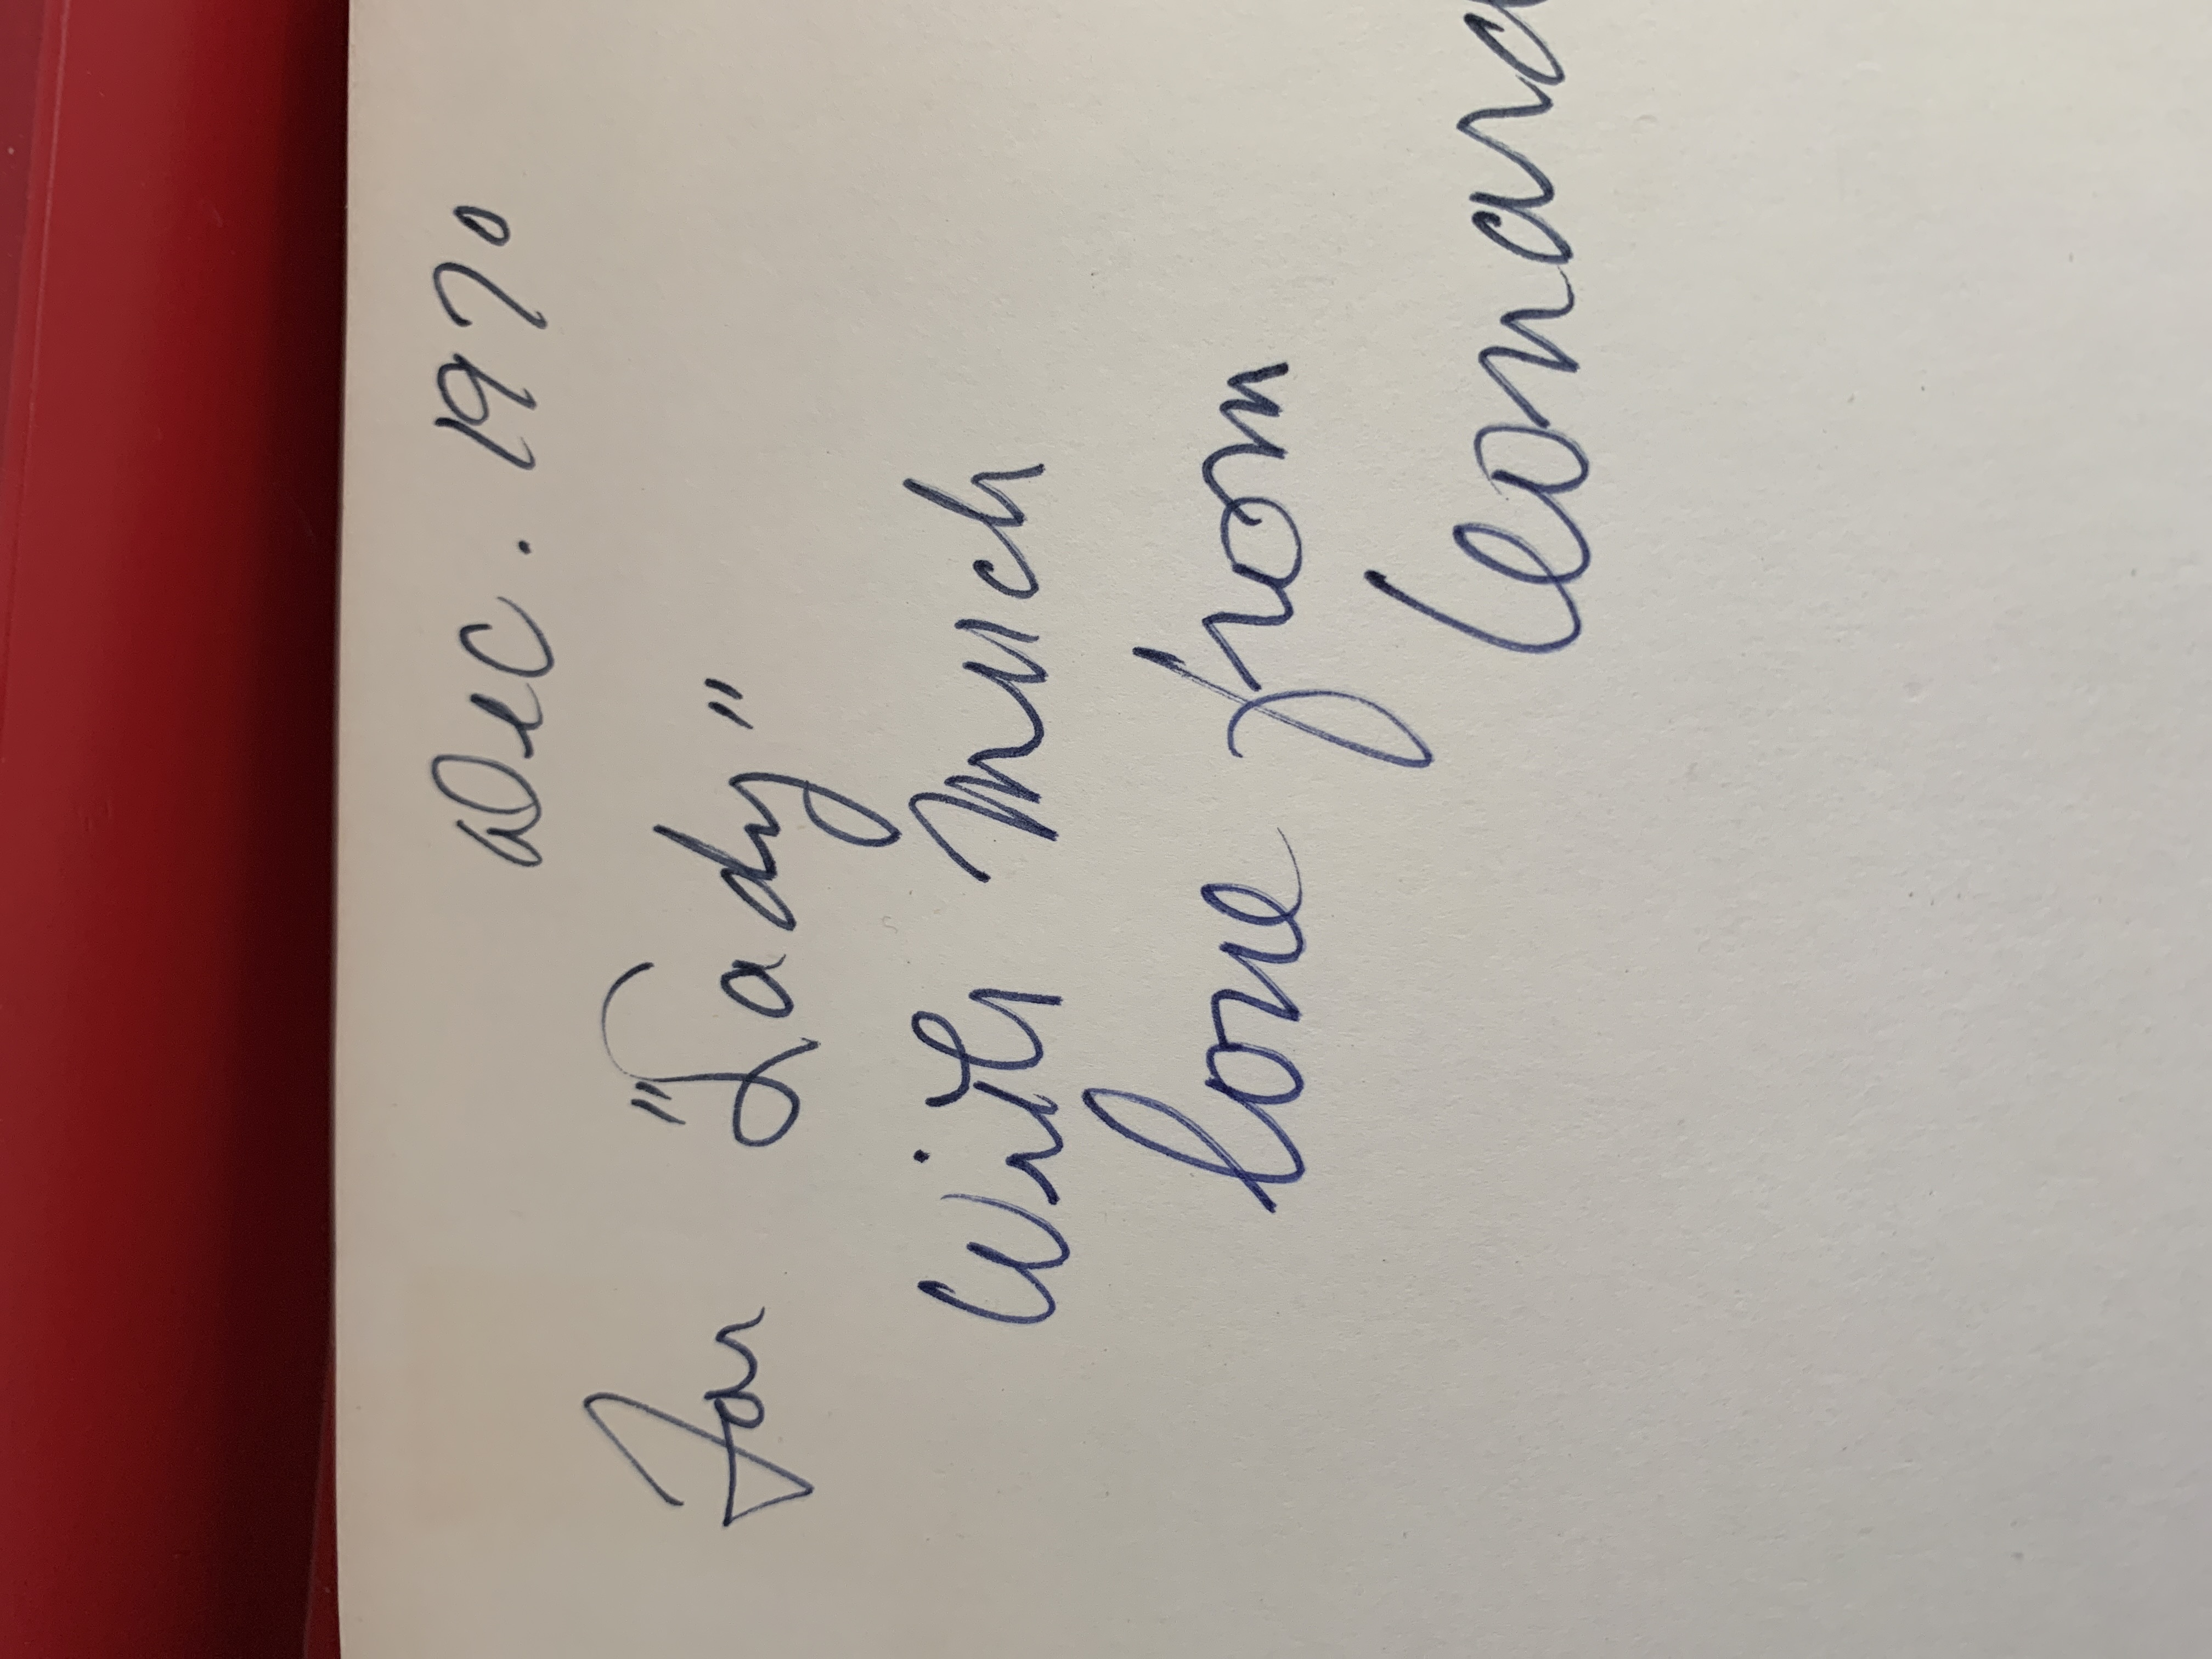 Dec. 1970
For "Lady"
with much
love from
Leonard